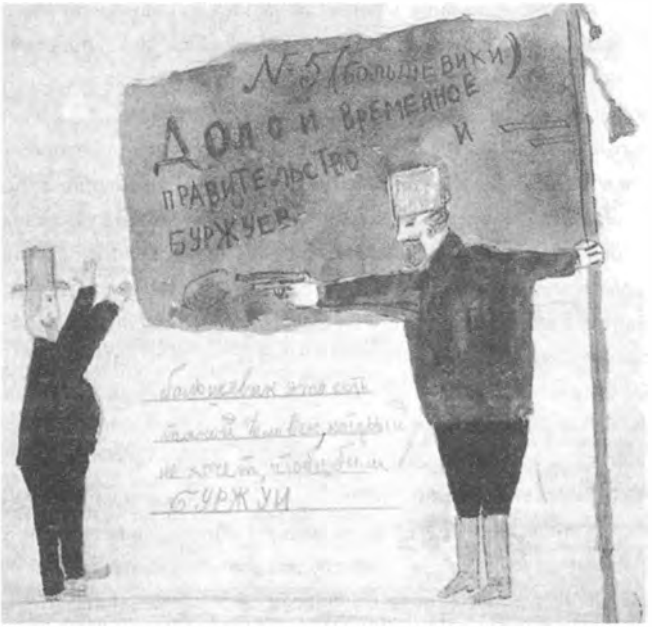 № 5 (БОЛЬШЕВИКИ)
ДОЛОЙ ВРЕМЕННОЕ
ПРАВИТЕЛЬСТВО И
БУРЖУЕВ
большевик это есть
такой человек, который
не хочет, чтобы были
БУРЖУИ